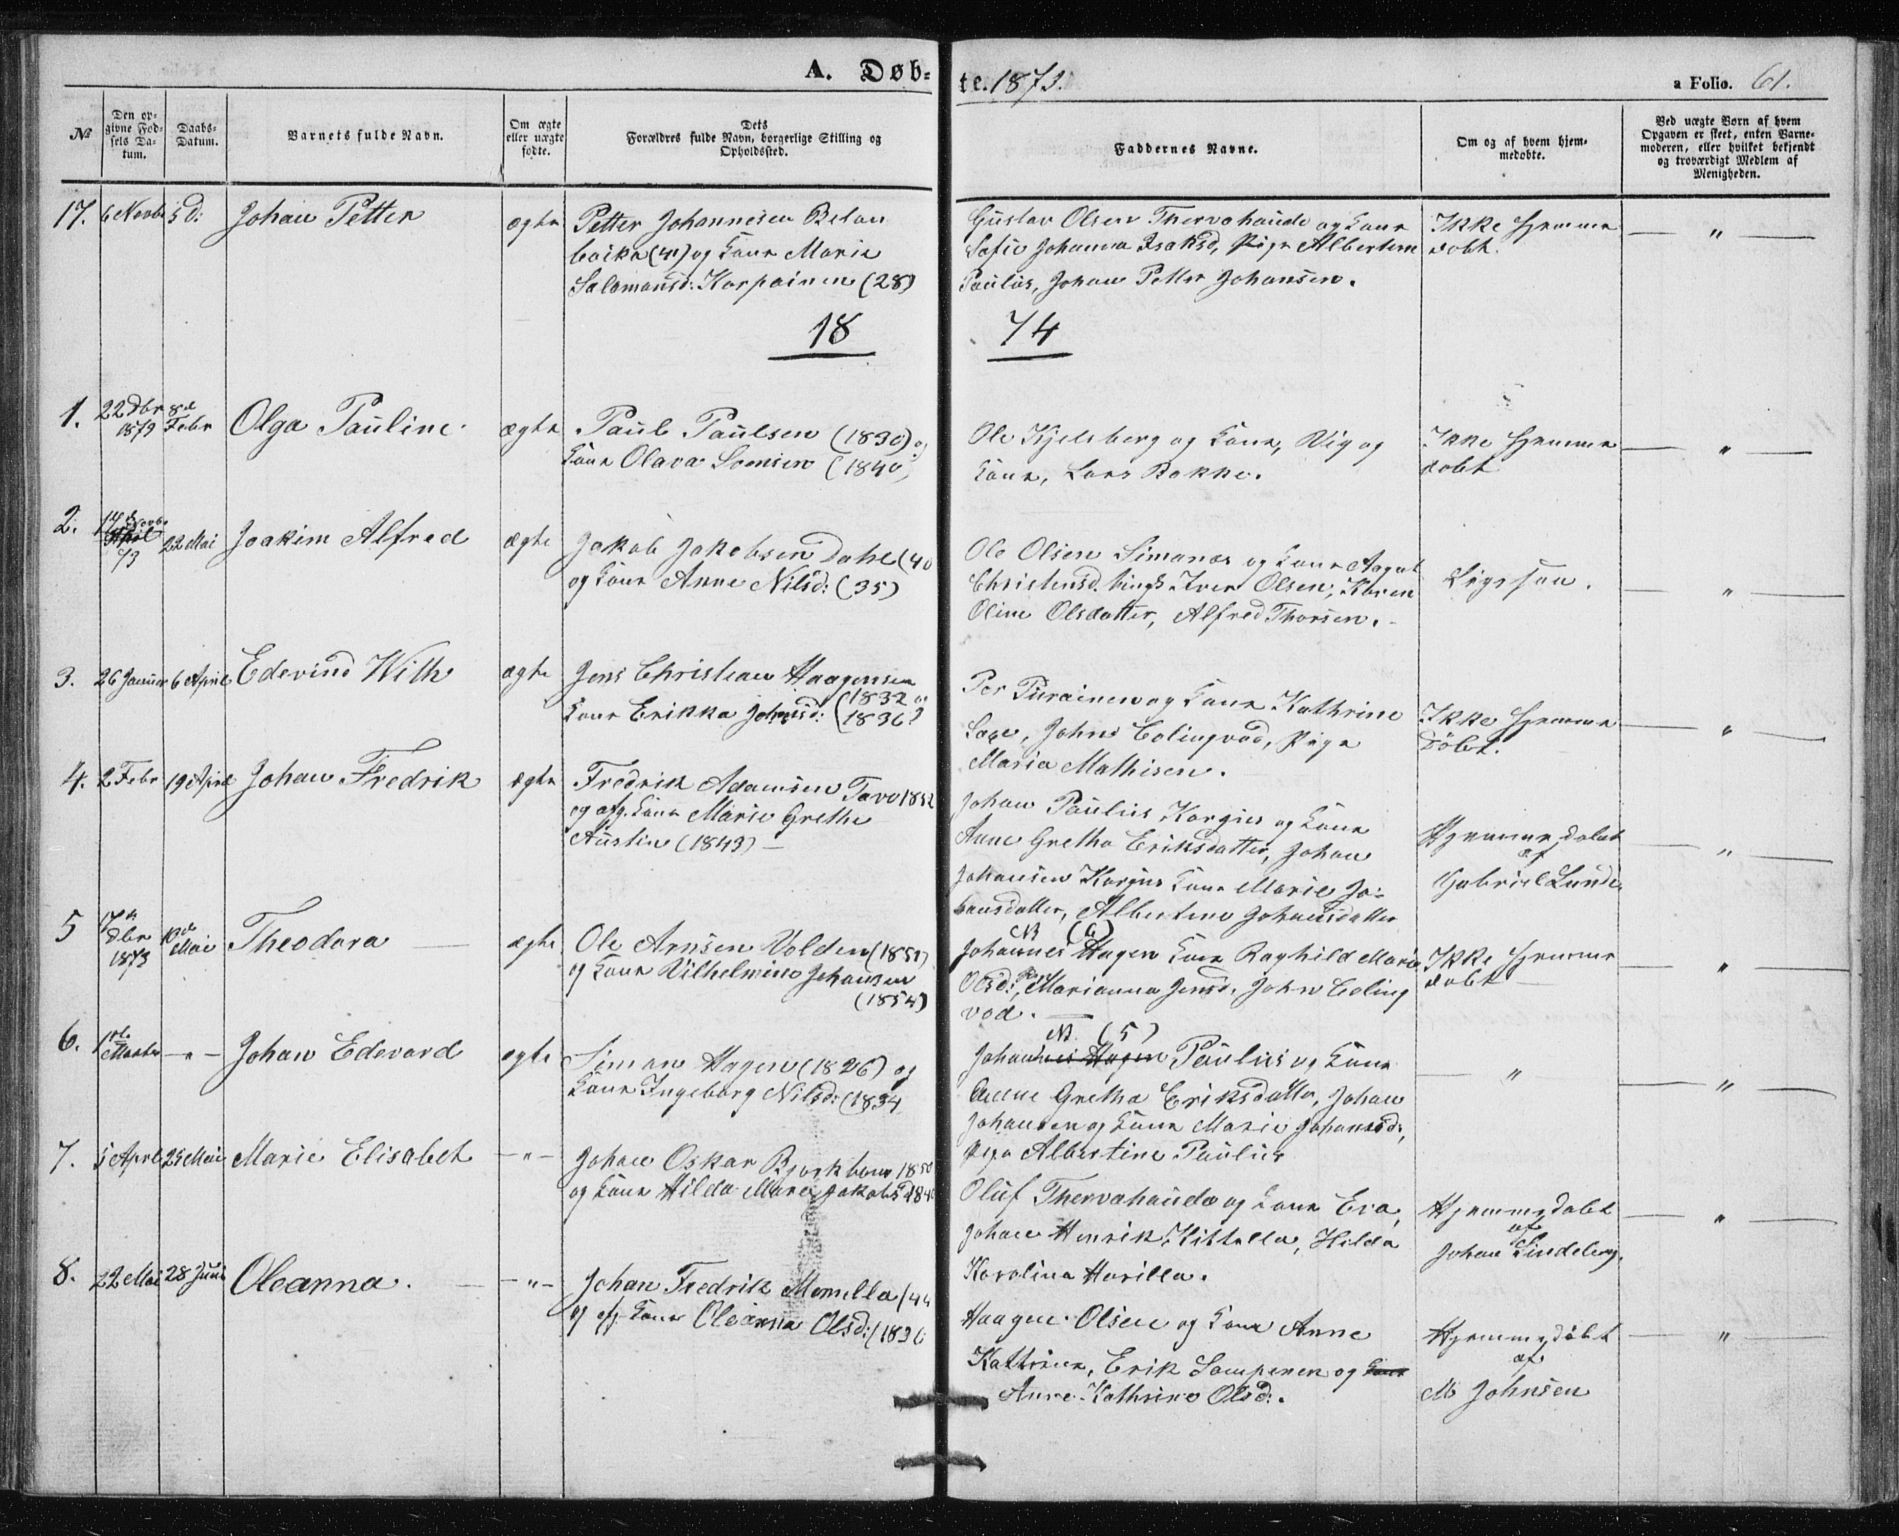 A. Døb=
te. 1873.
a Folio. 61.
№
Den op-
givne Fød-
sels Da-
tum.
Daabs-
Datum.
Barnets fulde Navn.
Om ægte
eller uægte
fødte.
Dets
Forældres fulde Navn, borgerlige Stilling og
Opholdssted.
Faddernes Navne.
Om og af hvem hjem-
medøbte.
Ved uægte Børn af hvem
Opgaven er skeet, enten Barne-
moderen, eller hvilket bekjendt
og troværdigt Medlem af
Menigheden.
17. 6 Novbr 5 D: Johan Petter ægte
Petter Johannesen
(41) og Kone Maria
Salomonsd: Korpainen (28)
Gustav Olsen og Kone
Sofie Johanna Isaksd, Pige
Paulus, Johan Petter Johansen.
Ikke Hjemme
døbt.
"
18 74
1. 22 Dbr 1873 8de Febr Olga Pauline. ægte
Paul Paulsen (1830) og
Kone Olava (1840)
Ole Kjelsberg og Kone, Vig og
Kone, Lars Bakke.
Ikke Hjemme
døbt
"
2. 14 Novbr April 73 22 Mai Joakim Alfred ægte
Jakob Jakobsen Dahl (40
og Kone Anne Nilsd: (35)
Ole Olsen Simonæs og Kone
Christensd. Iver Olsen, Karen
Oline Olsdatter, Alfred Thorsen.
Ligesaa.
"
3. 26 Januar 6 April Edevind Wilh ægte
Jens Christian Haagensen
(1832 og
Kone Erikka Johnsd: (1836)
Per og Kone Kathrine
John Colingvod, Pige
Maria Mathisen.
Ikke Hjemme
Døbt.
"
4. 2 Febr 19 April Johan Fredrik ægte
Fredrik Adamsen Tavo 1852
og Kone Marie Grethe
Austin (1843) —
Johan Paulus og Kone
Anne Gretha Eriksdatter, Johan
Johansen Kone Marie Jo=
hansdatter, Albertine Johansdatter
Hjemmedøbt
af
Gabriel Lunde
"
5 17de Dbr 1873 10de Mai Theodora ægte
Ole Arnsen Volden (1851)
og Kone Vilhelmine Johansen
(1854)
NB (6)
Johannes Hagen Kone Raghild Marie
Olsd:, Marianna Jensd. John Coling
vod.
Ikke Hjemme
døbt
"
6. 1ste Marts — " — Johan Edevard ægte
Simon Hagen (1826) og
Kone Ingeborg Nilsd: (1834
NB (5)
Johannes Hagen Paulus og Kone
Anne Gretha Eriksdatter, Johan
Johansen og Kone Marie Johansd:,
Pige Albertine Paulus
"
"
7. 5 April 25 Mai Marie Elisabet — " —
Johan Oskar 1850
og Kone Hilda Marie Jakobsd
Oluf og Kone Eva,
Johan Henrik Kittella, Hilda
Karolina Harilla.
Hjemmedøbt
af
Johan Lindeberg.
"
8. 22 Mai 28 Juni Oleanna. — " —
Johan Fredrik Momella (44
og Kone Oleanna Olsd: (1836
Haagen Olsen og Kone Anne
Kathrine, Erik og Kone
Anne Kathrine Olsd:.
Hjemmedøbt
af
M Johnsen
"